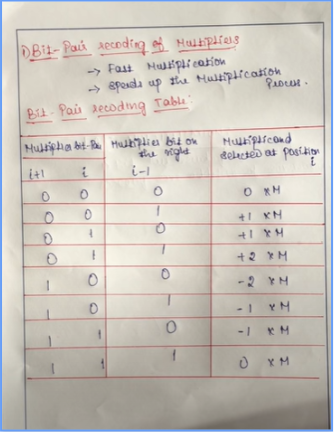 1) Bit-Pair recoding of Multipliers
→ Fast Multiplication
→ Speeds up the Multiplication Process.
Bit-Pair recoding Table:
Multiplier bit-Pair | Multiplier bit on the right | Multiplicand selected at position i
i+1 i | i-1
0 0 | 0 | 0 × M
0 0 | 1 | +1 × M
0 1 | 0 | +1 × M
0 1 | 1 | +2 × M
1 0 | 0 | -2 × M
1 0 | 1 | -1 × M
1 1 | 0 | -1 × M
1 1 | 1 | 0 × M